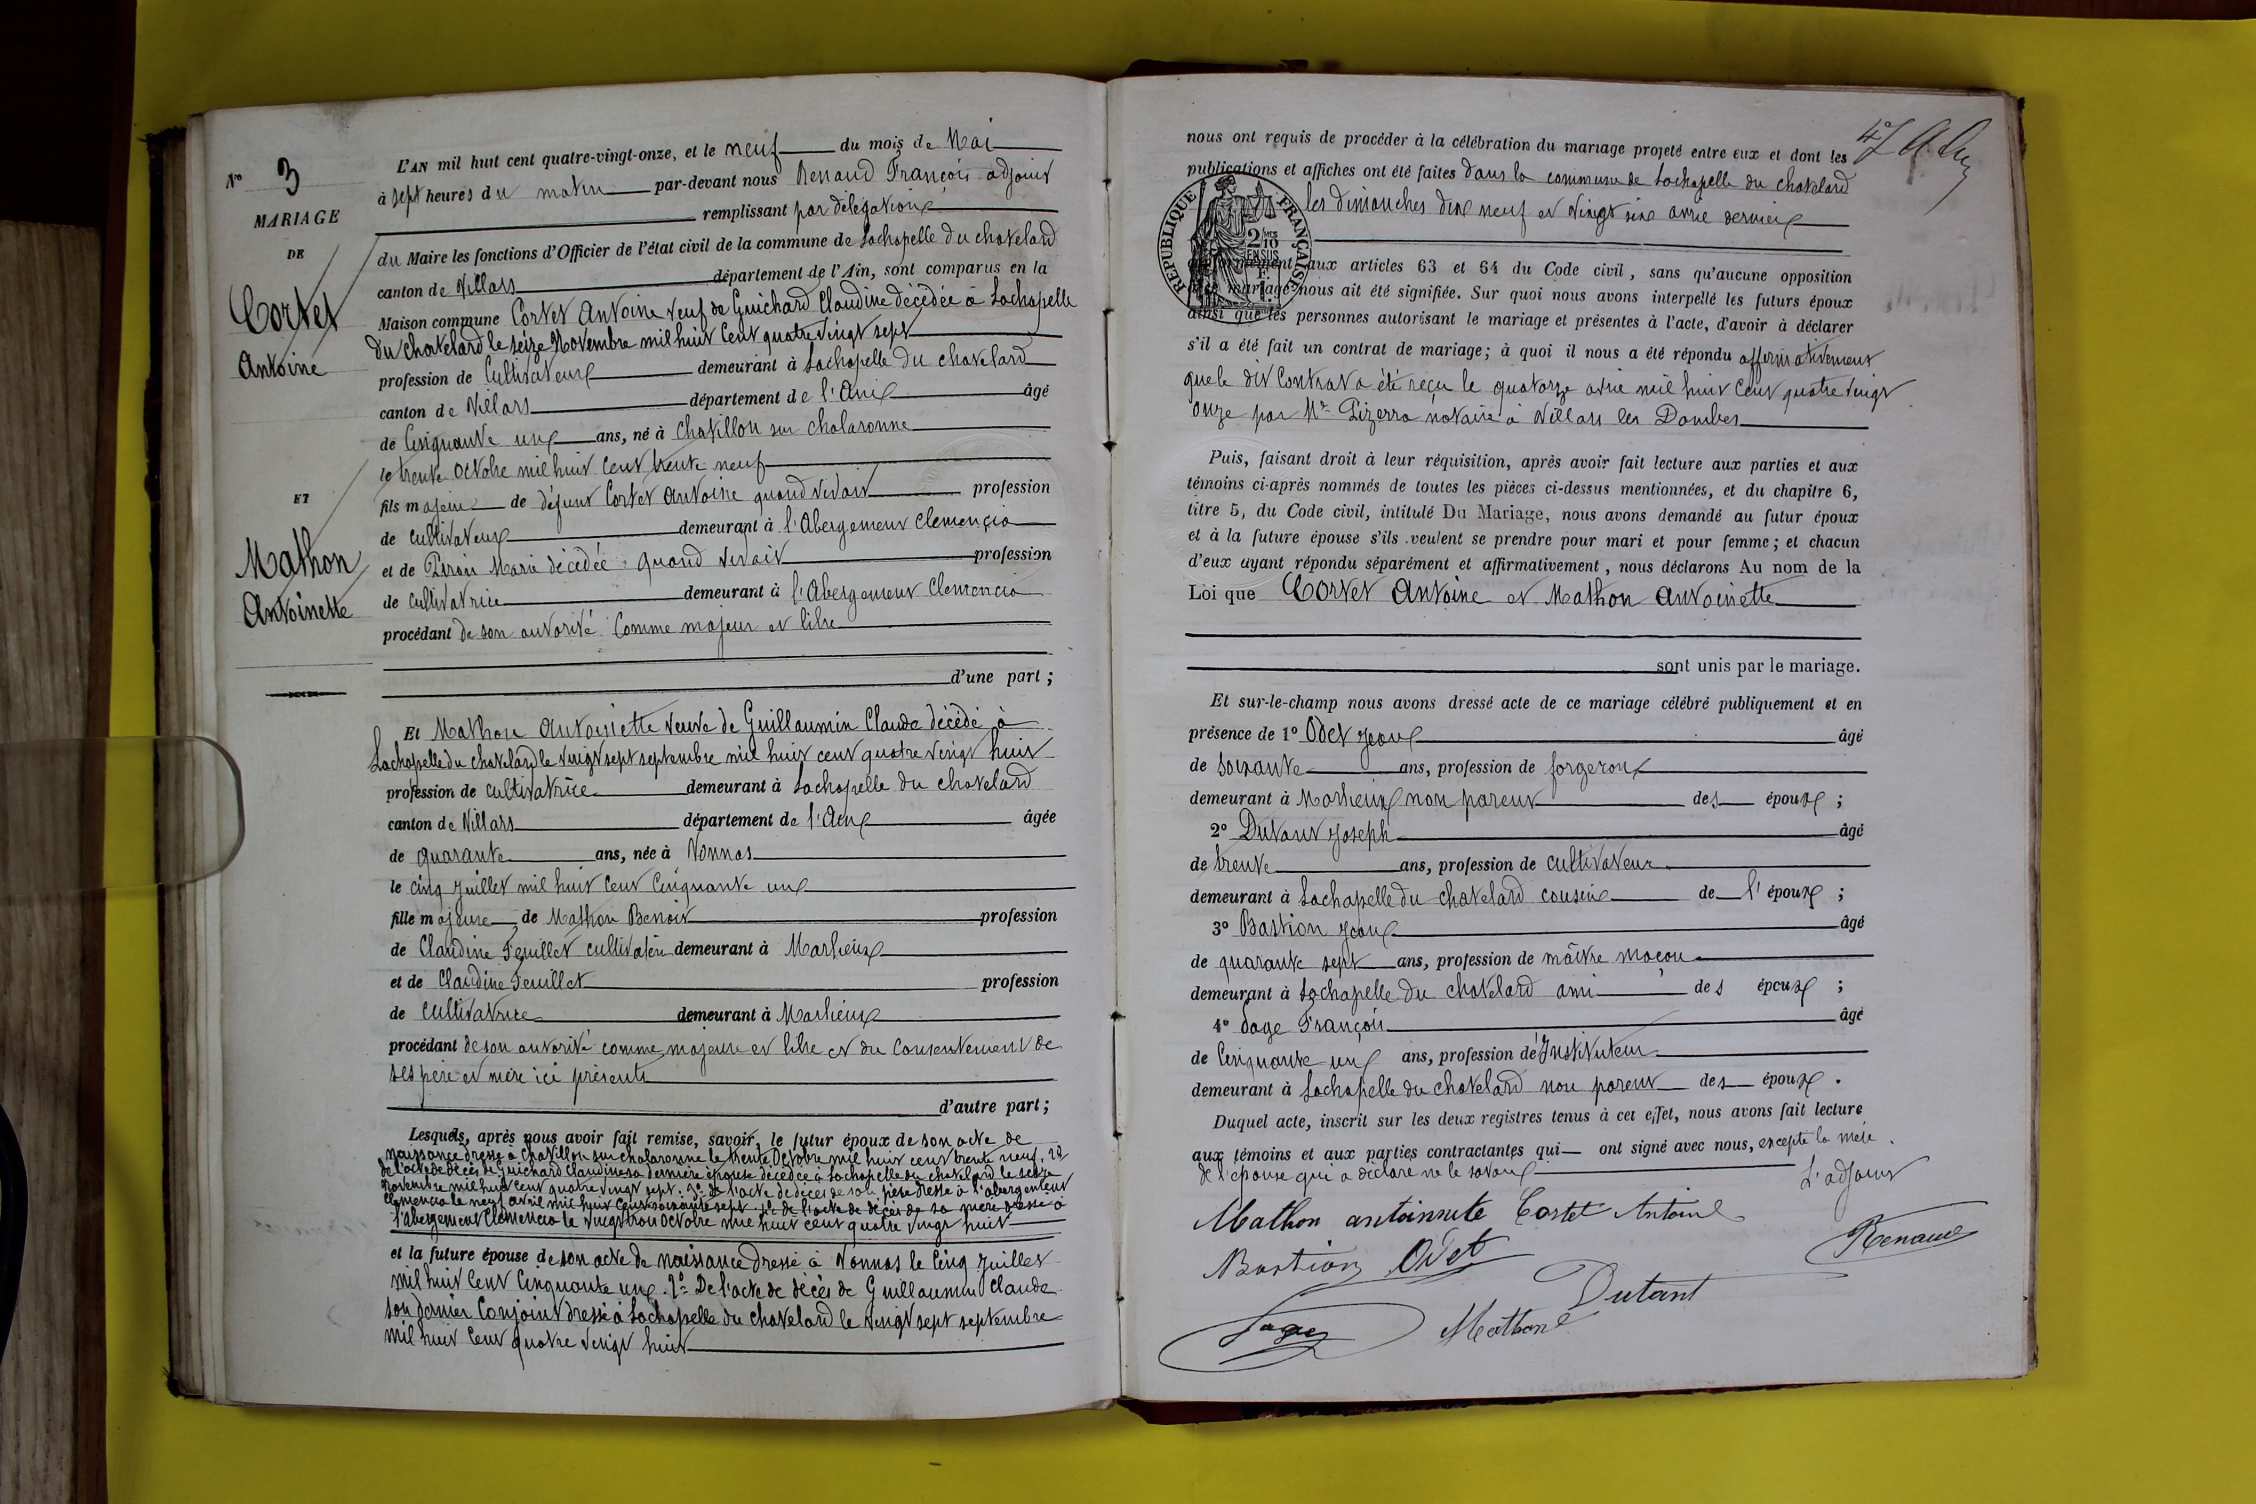 N° 3
MARIAGE
DE
Cortet
Antoine
ET
Mathon
Antoinette
L'AN mil huit cent quatre-vingt-onze, et le neuf du mois de Mai
à sept heures du matin par-devant nous Renaud François adjoint
remplissant par délégation
du Maire les fonctions d'Officier de l'état civil de la commune de Lachapelle du chatelard
canton de Villars département de l'Ain, sont comparus en la
Maison commune Cortet Antoine veuf de Guichard Claudine décédée à Lachapelle
du chatelard le seize Novembre mil huit cent quatre vingt sept
profession de Cultivateur demeurant à Lachapelle du chatelard
canton de Villars département de l'Ain âgé
de Cinquante un ans, né à Chatillon sur chalaronne
le trente Octobre mil huit cent trente neuf
fils majeur de défunt Cortet Antoine quand vivait profession
de cultivateur demeurant à l'Abergement Clemencia
et de Piron Marie décédée quand vivait profession
de cultivatrice demeurant à l'Abergement Clemencia
procédant de son autorité Comme majeur et libre
d'une part ;
Et Mathon Antoinette veuve de Guillaumin Claude décédé à
Lachapelle du chatelard le vingt sept septembre mil huit cent quatre vingt huit
profession de cultivatrice demeurant à Lachapelle du chatelard
canton de Villars département de l'Ain âgée
de quarante ans, née à Vonnas
le cinq Juillet mil huit Cent Cinquante un
fille majeure de Mathon Benoit profession
de Claudine Feuillet cultivateur demeurant à Marlieux
et de Claudine Feuillet profession
de Cultivatrice demeurant à Marlieux
procédant de son autorité comme majeure et libre et du Consentement de
ses père et mère ici présents
d'autre part ;
Lesquels, après nous avoir fait remise, savoir, le futur époux de son acte de
naissance dressé à Chatillon sur chalaronne le trente Octobre mil huit cent trente neuf. 2°
de l'acte de décès de Guichard Claudine sa dernière épouse décédée à Lachapelle du chatelard le seize
Novembre mil huit cent quatre vingt sept. 3° de l'acte de décès de son père dressé à l'abergement
Clemencia le neuf avril mil huit Cent soixante sept. 4° de l'acte de décès de sa mère dressé à
l'abergement Clemencia le vingt trois Octobre mil huit cent quatre vingt huit
et la future épouse de son acte de naissance dressé à Vonnas le Cinq Juillet
mil huit Cent Cinquante un. 2° De l'acte de décès de Guillaumin Claude
son dernier Conjoint dressé à Lachapelle du chatelard le vingt sept septembre
mil huit Cent quatre vingt huit
nous ont requis de procéder à la célébration du mariage projeté entre eux et dont les
publications et affiches ont été faites dans la commune de Lachapelle du chatelard
les dimanches dix neuf et vingt six avril dernier
RÉPUBLIQUE FRANÇAISE
2/10 EN SUS
conformément aux articles 63 et 64 du Code civil, sans qu'aucune opposition
mariage nous ait été signifiée. Sur quoi nous avons interpellé les futurs époux
ainsi que les personnes autorisant le mariage et présentes à l'acte, d'avoir à déclarer
s'il a été fait un contrat de mariage; à quoi il nous a été répondu affirmativement
que le dit Contrat a été reçu le quatorze avril mil huit Cent quatre vingt
onze par Me Pizerra notaire à Villars les Dombes
Puis, faisant droit à leur réquisition, après avoir fait lecture aux parties et aux
témoins ci-après nommés de toutes les pièces ci-dessus mentionnées, et du chapitre 6,
titre 5, du Code civil, intitulé Du Mariage, nous avons demandé au futur époux
et à la future épouse s'ils veulent se prendre pour mari et pour femme; et chacun
d'eux ayant répondu séparément et affirmativement, nous déclarons Au nom de la
Loi que Cortet Antoine et Mathon Antoinette
sont unis par le mariage.
Et sur-le-champ nous avons dressé acte de ce mariage célébré publiquement et en
présence de 1° Odet Jean âgé
de soixante ans, profession de forgeron
demeurant à Marlieux non parent des époux ;
2° Dutant Joseph âgé
de trente ans, profession de cultivateur
demeurant à Lachapelle du chatelard cousin de l'époux ;
3° Bastion Jean âgé
de quarante sept ans, profession de maître maçon
demeurant à Lachapelle du chatelard ami des époux ;
4° Sage François âgé
de Cinquante un ans, profession d'Instituteur
demeurant à Lachapelle du chatelard non parent des époux .
Duquel acte, inscrit sur les deux registres tenus à cet effet, nous avons fait lecture
aux témoins et aux parties contractantes qui ont signé avec nous, excepté la mère
de l'épouse qui a déclaré ne le savoir
L'adjoint
Mathon antoinnete Cortet Antoine
Renaud
Bastion Odet
Dutant
Sage Mathon